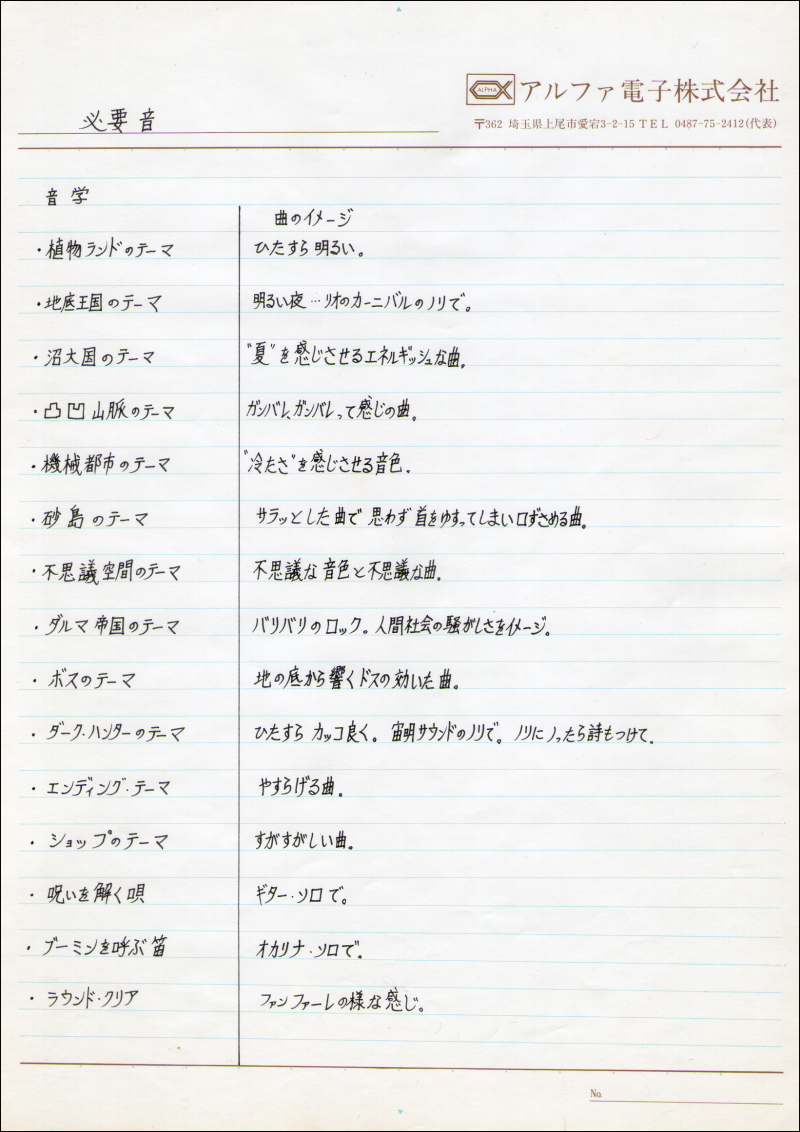 ALPHA アルファ電子株式会社
必要音
〒362 埼玉県上尾市愛宕3-2-15 TEL 0487-75-2412(代表)
音学
曲のイメージ
・植物ランドのテーマ ひたすら明るい。
・地底王国のテーマ 明るい夜…リオのカーニバルのノリで。
・沼大国のテーマ "夏"を感じさせるエネルギッシュな曲。
・凸凹山脈のテーマ ガンバレ、ガンバレって感じの曲。
・機械都市のテーマ "冷たさ"を感じさせる音色。
・砂島のテーマ サラッとした曲で思わず首をゆすってしまい口ずさめる曲。
・不思議空間のテーマ 不思議な音色と不思議な曲。
・ダルマ帝国のテーマ バリバリのロック。人間社会の騒がしさをイメージ。
・ボスのテーマ 地の底から響くドスの効いた曲。
・ダーク・ハンターのテーマ ひたすらカッコ良く。宙明サウンドのノリで。ノリにノったら詩もつけて。
・エンディング・テーマ やすらげる曲。
・ショップのテーマ すがすがしい曲。
・呪いを解く唄 ギター・ソロで。
・ブーミンを呼ぶ笛 オカリナ・ソロで。
・ラウンド・クリア ファンファーレの様な感じ。
No.